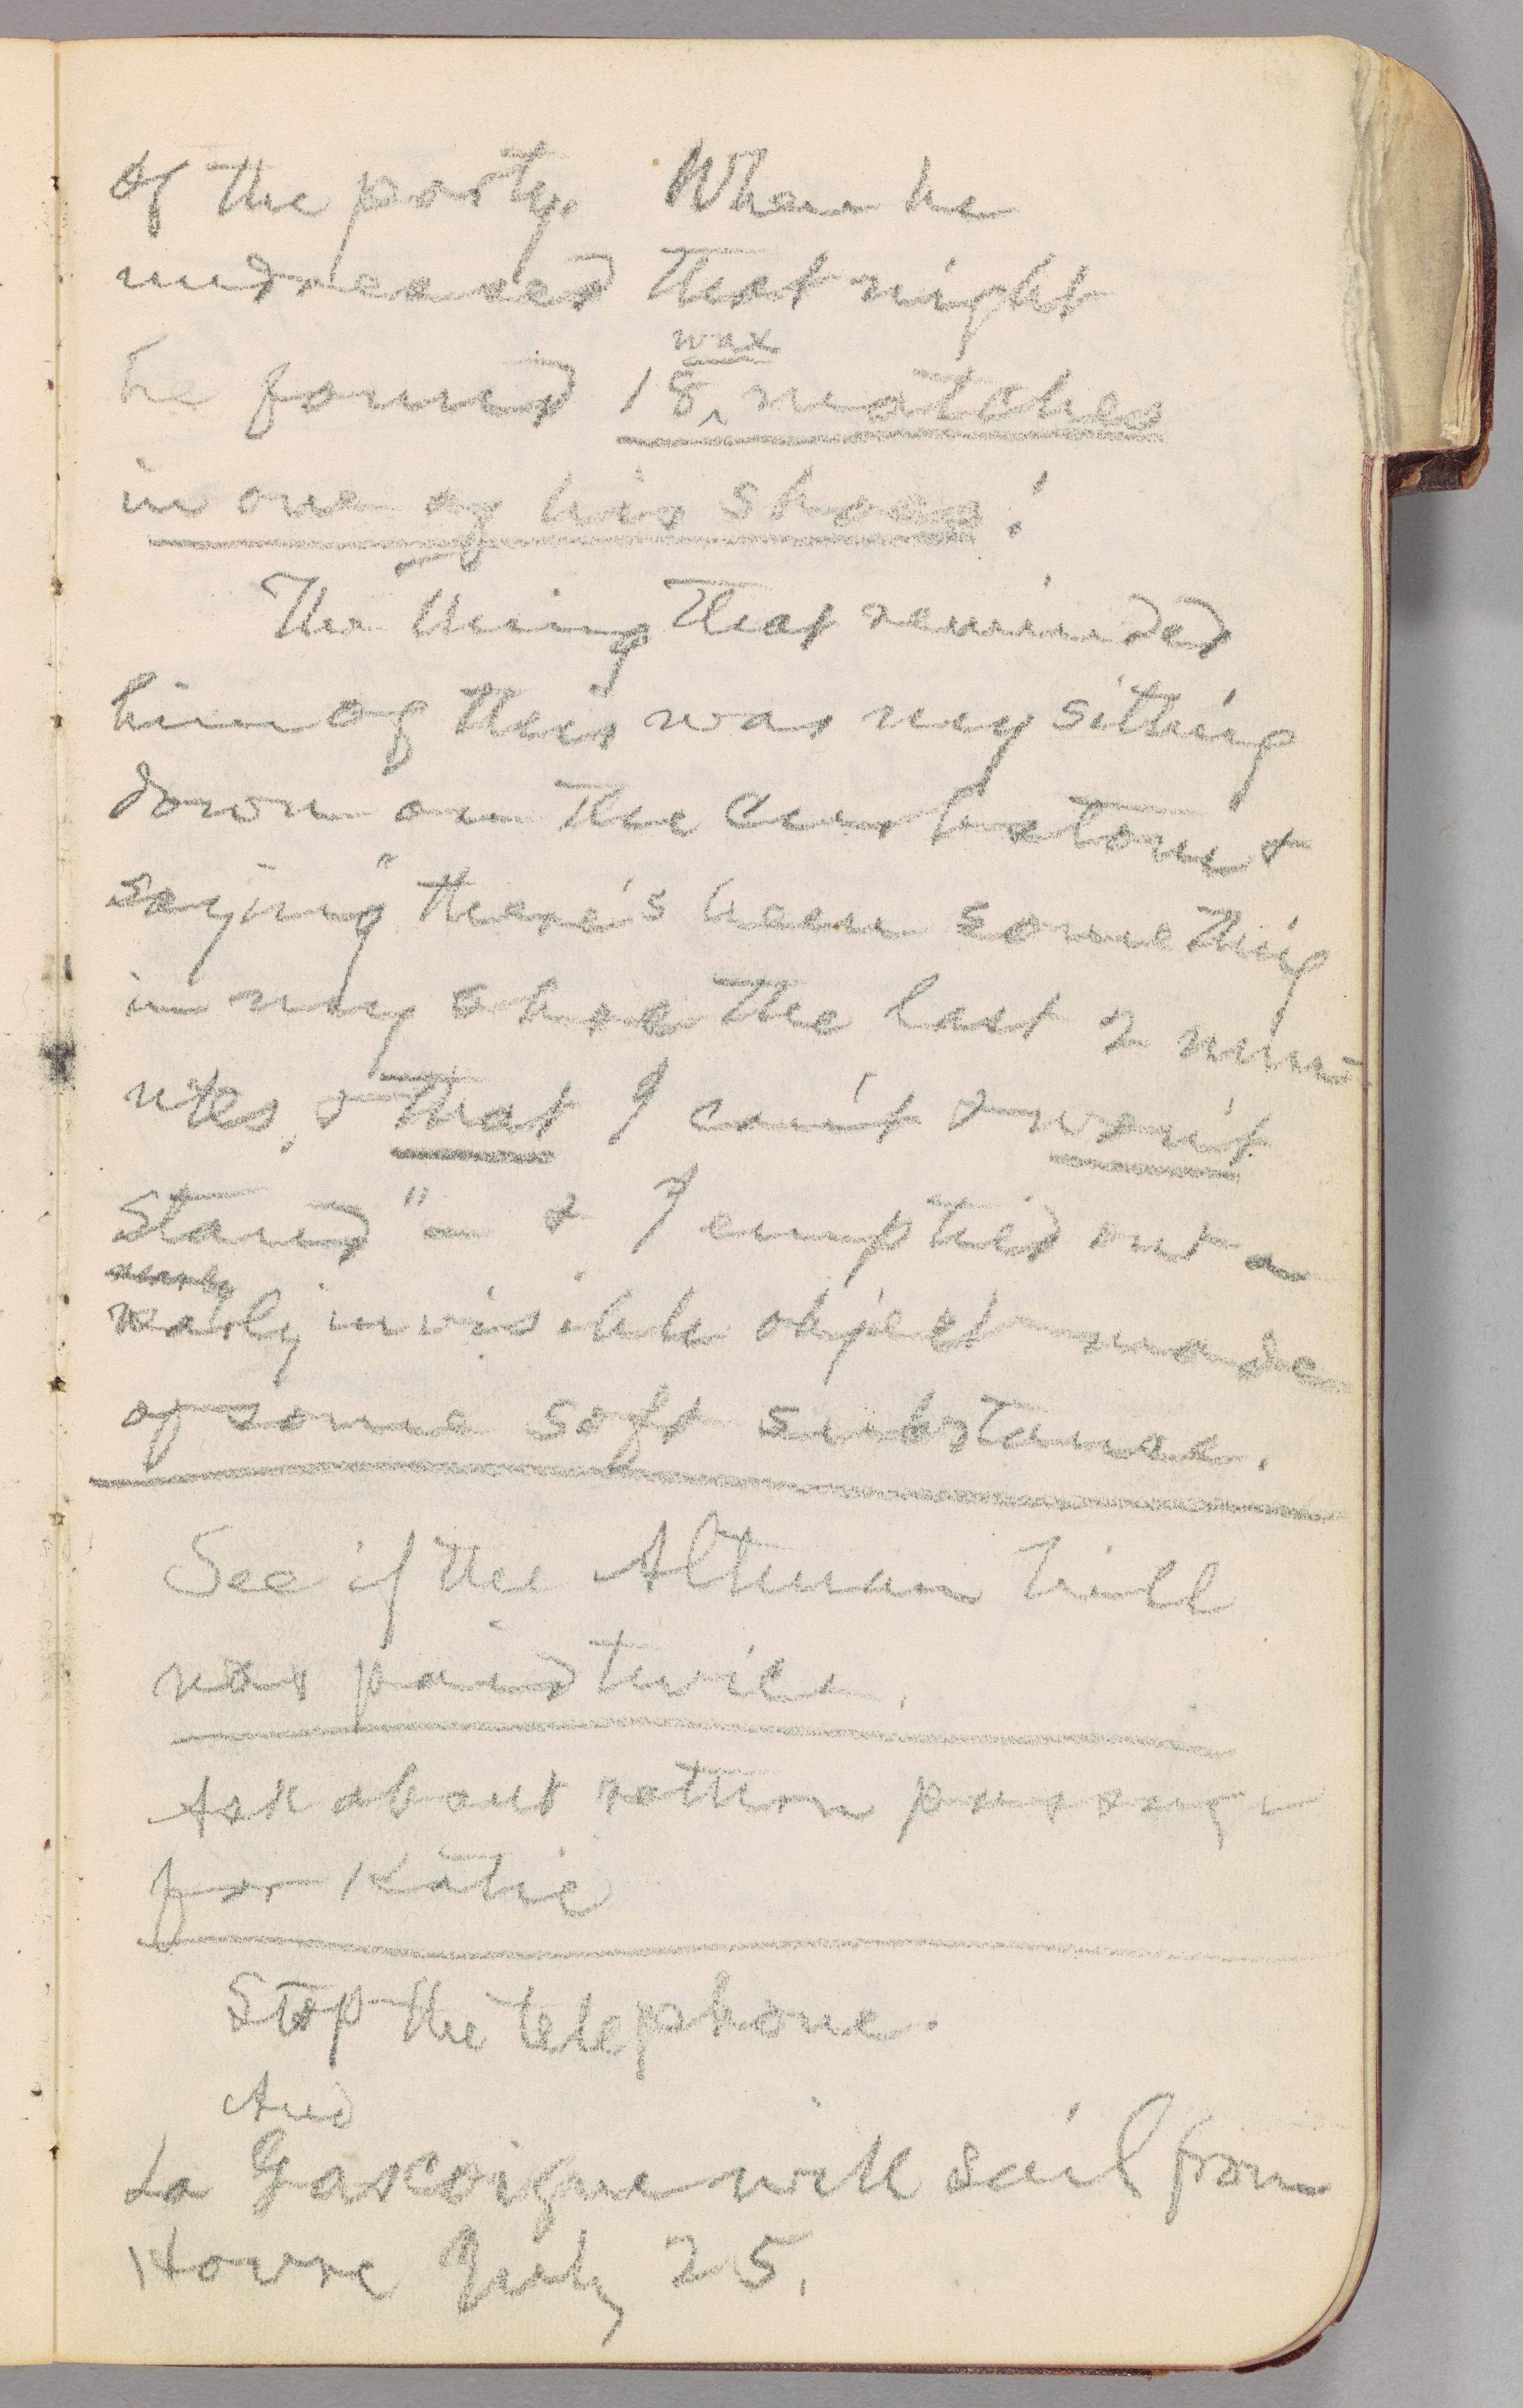 of the party. When he
undressed that night
wax
he found 18 ‸ matches
in one of his shoes!
The thing that reminded
him of this was my sitting
down on the curbstone &
saying "there's been something
in my shoe the last 2 min-
utes, & that I can't & won't
stand" — & I emptied out a
nearly
nearly invisible object made
of some soft substance.
See if the Altman bill
was paid twice.
Ask about return passage
for Katie
Stop the telephone.
And
La Gascoigne will sail from
Havre July 25.